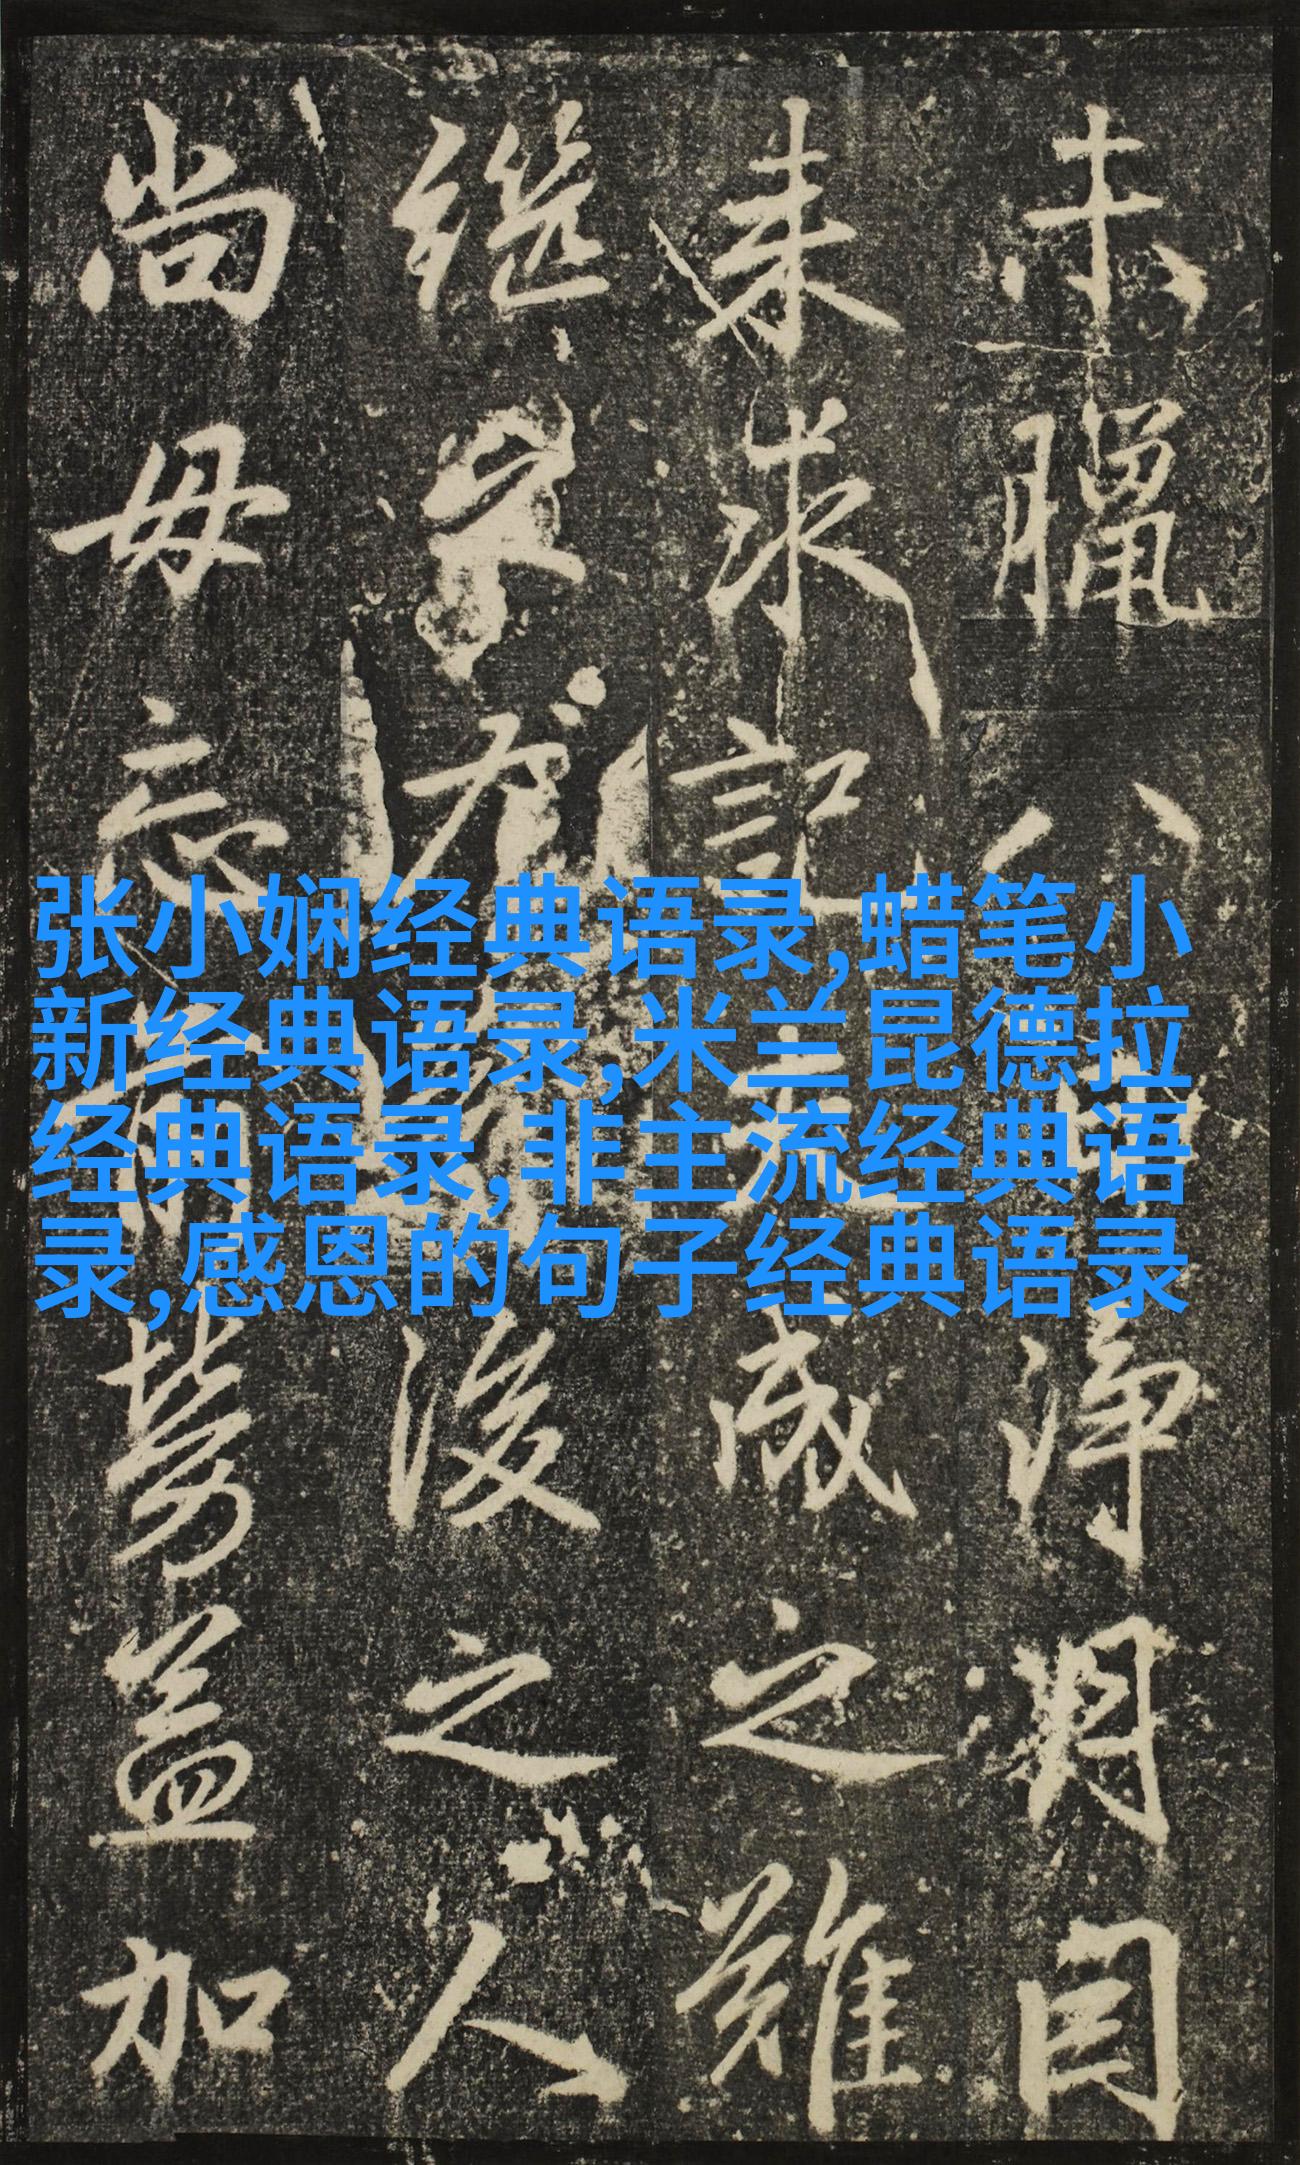 未臘八淨
来求記成之難
継後之人
尚毋忘前勞益加
张小娴经典语录,蜡笔小
新经典语录,米兰昆德拉
经典语录,非主流经典语
录,感恩的句子经典语录